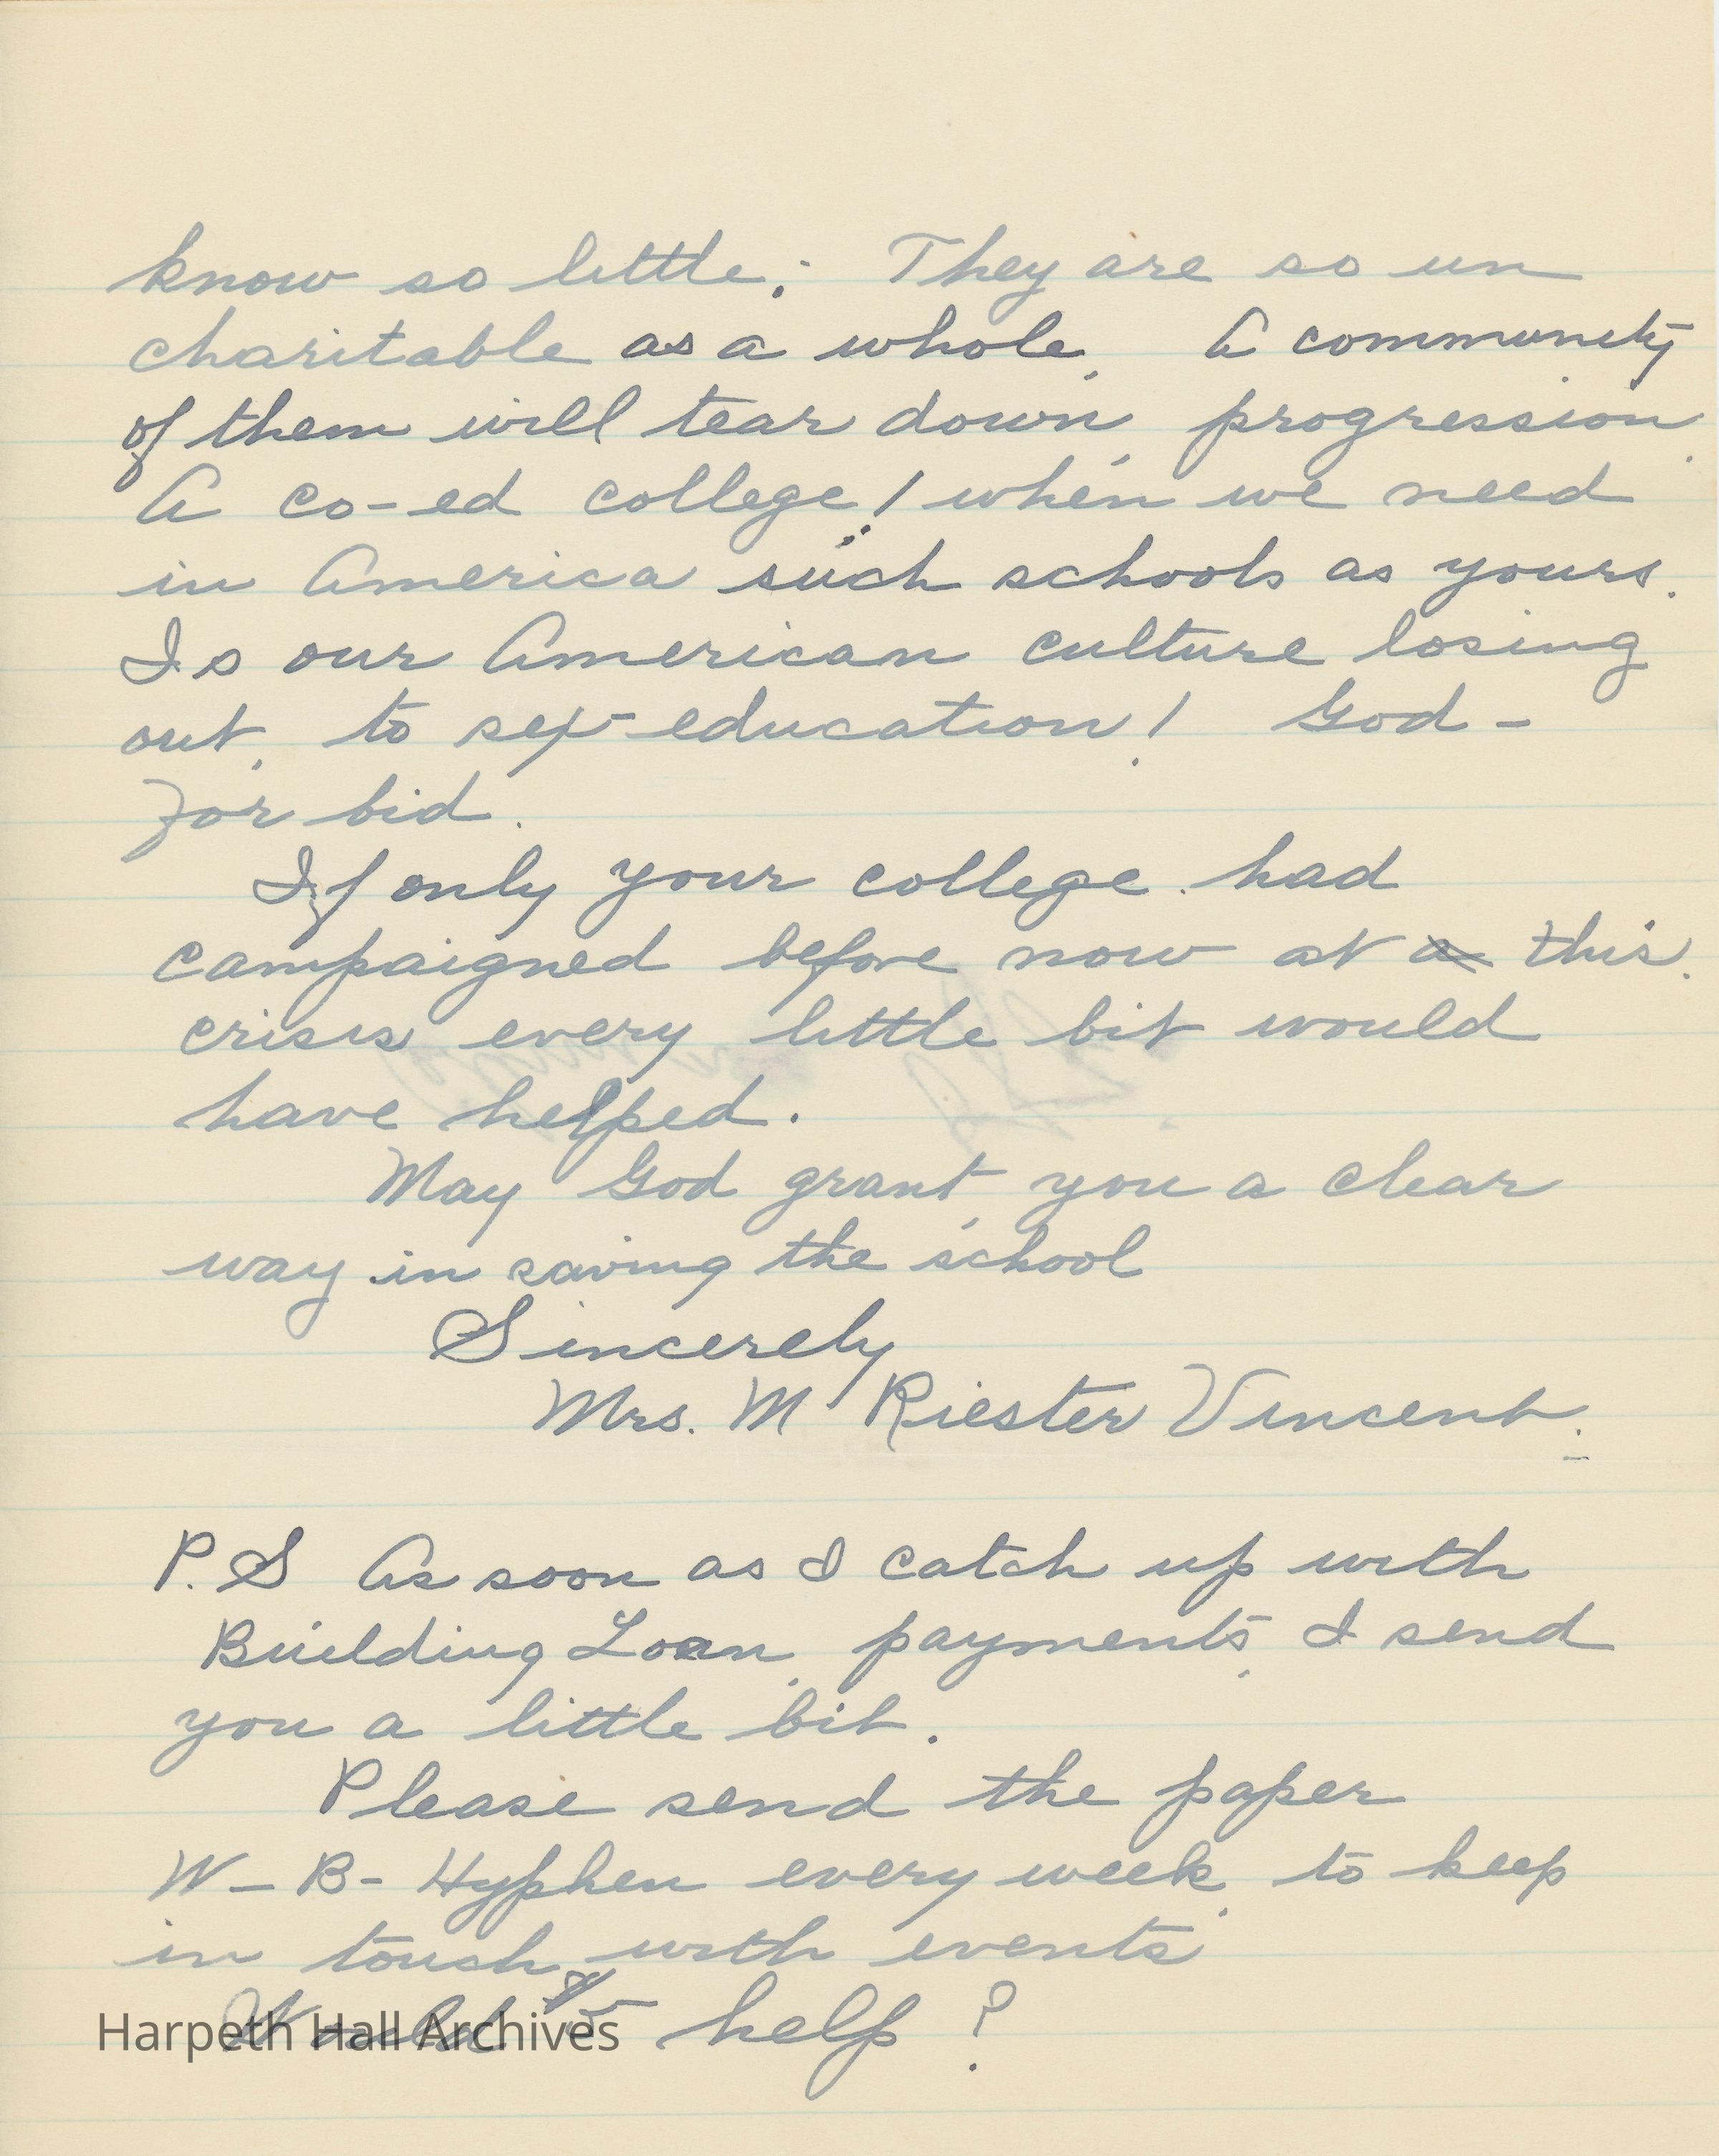 know so little; They are so un
charitable as a whole. A community
of them will tear down progression.
A co-ed college! when we need
in America such schools as yours.
Is our American culture losing
out, to sex-education! God-
for bid.
If only your college had
campaigned before now at a this
crisis every little bit would
have helped.
May God grant you a clear
way in saving the school
Sincerely
Mrs. M Riester Vincent.
P.S As soon as I catch up with
Building Loan payments I send
you a little bit.
Please send the paper
W-B-Hyphen every week to keep
in touch with events
Would $5 help?
Harpeth Hall Archives